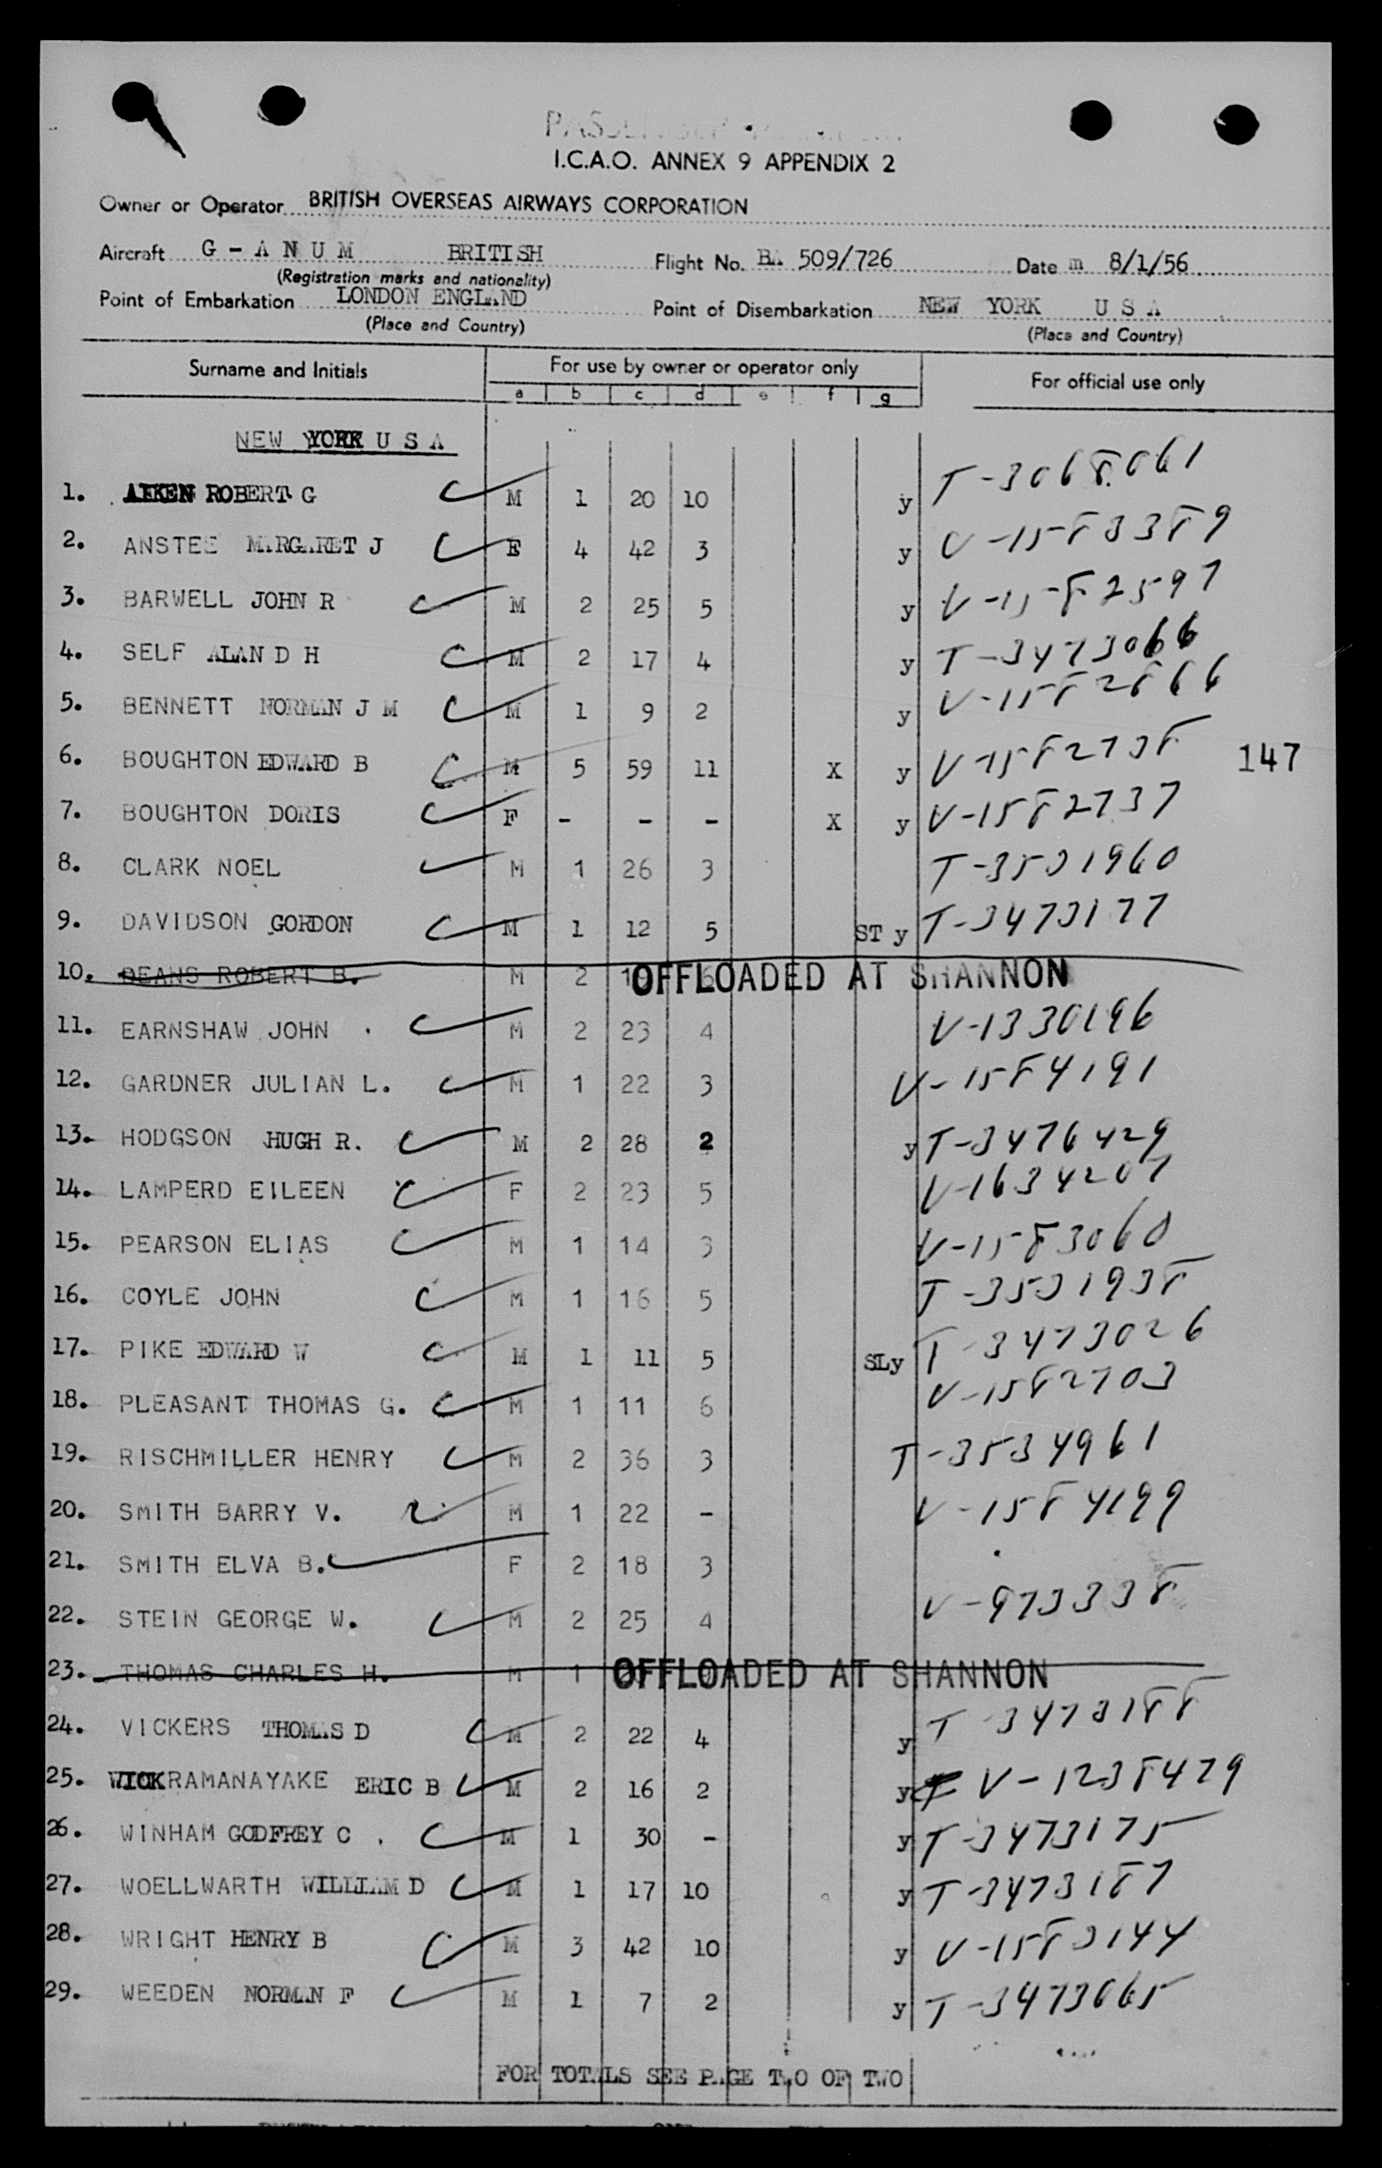 PASSENGER
I.C.A.O. ANNEX 9 APPENDIX 2
Owner or Operator BRITISH OVERSEAS AIRWAYS CORPORATION
Aircraft G - A N U M BRITISH Flight No. BA 509/726 Date m 8/1/56
(Registration marks and nationality)
Point of Embarkation LONDON ENGLAND Point of Disembarkation NEW YORK U S A
(Place and Country) (Place and Country)
Surname and Initials For use by owner or operator only For official use only
a b c d e f g
NEW YORK U S A
1. AIKEN ROBERT G C M 1 20 10 y T-3068061
2. ANSTEE MARGARET J C F 4 42 3 y V-1583389
3. BARWELL JOHN R C M 2 25 5 y V-1582597
4. SELF ALAN D H C M 2 17 4 y T-3473066
5. BENNETT NORMAN J M C M 1 9 2 y V-1582866
6. BOUGHTON EDWARD B C M 5 59 11 X y V-1582738 147
7. BOUGHTON DORIS C F - - - X y V-1582737
8. CLARK NOEL M 1 26 3 T-3531960
9. DAVIDSON GORDON C M 1 12 5 ST y T-3473177
10. DEANS ROBERT B. M 2 OFFLOADED AT SHANNON
11. EARNSHAW JOHN . C M 2 23 4 V-1330196
12. GARDNER JULIAN L. C M 1 22 3 V-1584191
13. HODGSON HUGH R. C M 2 28 2 y T-3476429
14. LAMPERD EILEEN C F 2 23 5 V-1634207
15. PEARSON ELIAS C M 1 14 3 V-1583060
16. COYLE JOHN C M 1 16 5 T-3531938
17. PIKE EDWARD W C M 1 11 5 SLy T-3473026
18. PLEASANT THOMAS G. C M 1 11 6 V-1582703
19. RISCHMILLER HENRY C M 2 36 3 T-3534961
20. SMITH BARRY V. M 1 22 - V-1584199
21. SMITH ELVA B. C F 2 18 3
22. STEIN GEORGE W. C M 2 25 4 V-973338
23. THOMAS CHARLES H. M 1 OFFLOADED AT SHANNON
24. VICKERS THOMAS D C M 2 22 4 y T-3473188
25. WICKRAMANAYAKE ERIC B C M 2 16 2 y V-1238429
26. WINHAM GODFREY C . C M 1 30 - y T-3473175
27. WOELLWARTH WILLIAM D C M 1 17 10 y T-3473187
28. WRIGHT HENRY B C M 3 42 10 y V-1583144
29. WEEDEN NORMAN F C M 1 7 2 y T-3473065
FOR TOTALS SEE PAGE TWO OF TWO